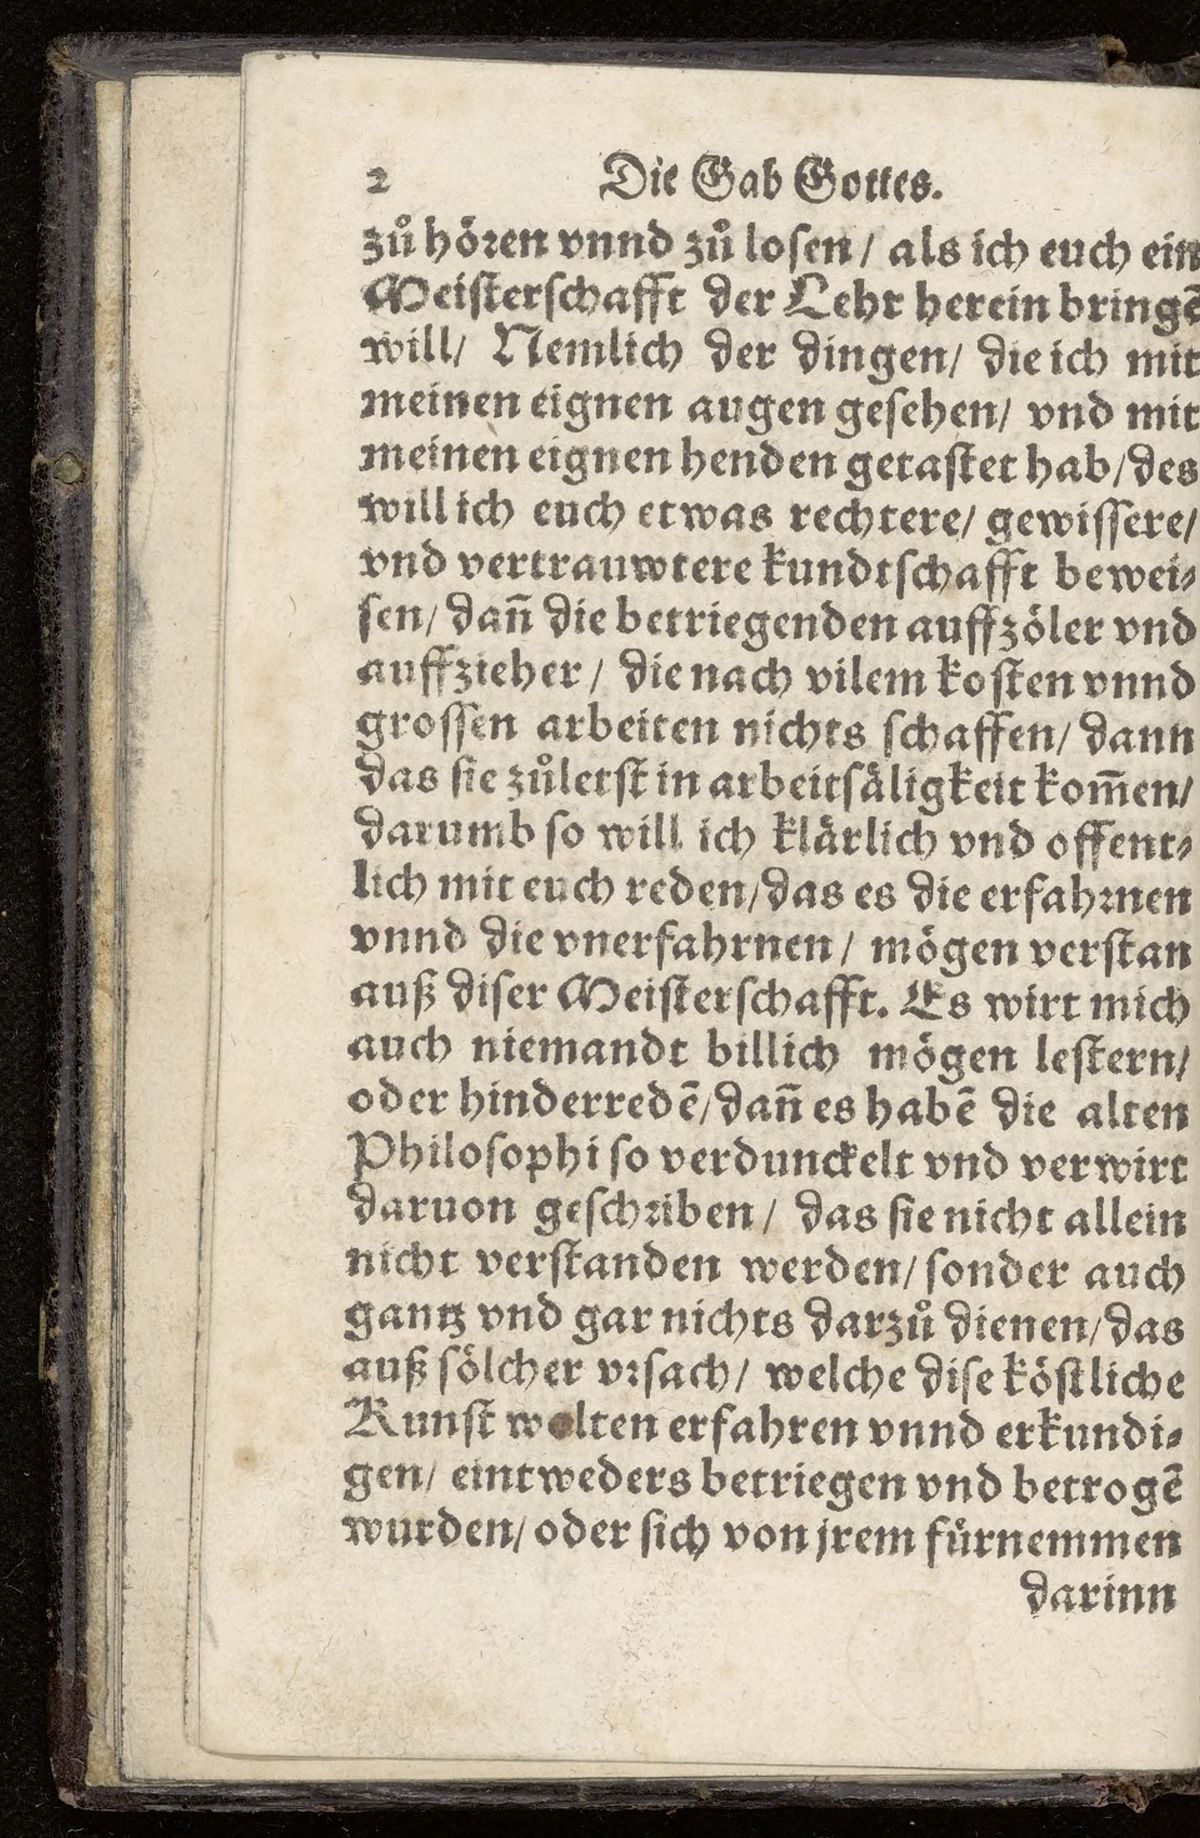 2 Die Gab Gottes.
zů hören vnnd zů losen / als ich euch ein
Meisterschafft der Lehr herein bringē
will / Nemlich der dingen / die ich mit
meinen eignen augen gesehen / vnd mit
meinen eignen henden getastet hab / des
will ich euch etwas rechtere / gewissere /
vnd vertrauwtere kundtschafft bewei⸗
sen / dañ die betriegenden auffzöler vnd
auffzieher / die nach vilem kosten vnnd
grossen arbeiten nichts schaffen / dann
das sie zůletst in arbeitsäligkeit kom̄en /
darumb so will ich klärlich vnd offent⸗
lich mit euch reden / das es die erfahrnen
vnnd die vnerfahrnen / mögen verstan
auß diser Meisterschafft. Es wirt mich
auch niemandt billich mögen lestern /
oder hinderredē / dañ es habē die alten
Philosophi so verdunckelt vnd verwirt
daruon geschriben / das sie nicht allein
nicht verstanden werden / sonder auch
gantz vnd gar nichts darzů dienen / das
auß sölcher vrsach / welche dise köstliche
Kunst wolten erfahren vnnd erkundi⸗
gen / eintweders betriegen vnd betrogē
wurden / oder sich von jrem fürnemmen
darinn